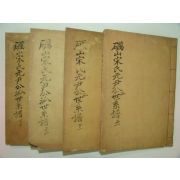 礪山宋氏元尹公派世系譜
礪山宋氏元尹公派世系譜
礪山宋氏元尹公派世系譜
礪山宋氏元尹公派世系譜